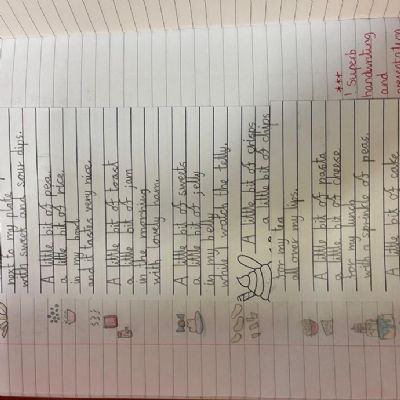 next to my plate
with sweet and sour dips.
A little bit of pea,
a little bit of rice
in my bowl
and it tastes very nice.
A little bit of toast
a little bit of jam
in the morning
with lovely ham.
A little bit of sweets
a little bit of jelly
in my belly
watch the telly.
A little bit of crisps
a little bit of chips
for my tea
all over my lips.
A little bit of pasta
a little bit of cheese
for my lunch
with a sprinkle of peas.
A little bit of cake
***
! Superb
handwriting
and
presentation